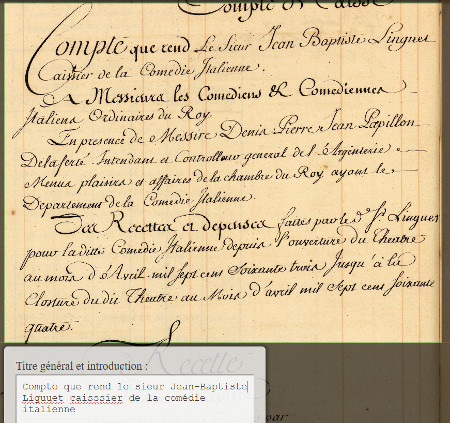 Compte de Caisse
Compte que rend Le Sieur Jean Baptiste Linguet
Caissier de la Comedie Italienne.
A Messieurs les Comediens & Comediennes
Italiens Ordinaires du Roy
En presence de Messire Denis Pierre Jean Papillon
Delaferté Intendant et Controlleur general de l'Argenterie
Menus plaisirs et affaires de la chambre du Roy ayant le
Departement de la Comedie Italienne.
Des Recettes et depenses faittes par le d. Sr. Linguet
pour laditte Comedie Italienne depuis l'ouverture du Theatre
au mois d'Avril mil sept cens soixante trois Jusqu'à la
Closture dudit Theatre au Mois d'avril mil sept cens soixante
quatre.
Recettes
Titre général et introduction :
Compte que rend le sieur Jean-Baptiste
Liguuet caisssier de la comédie
italienne
par